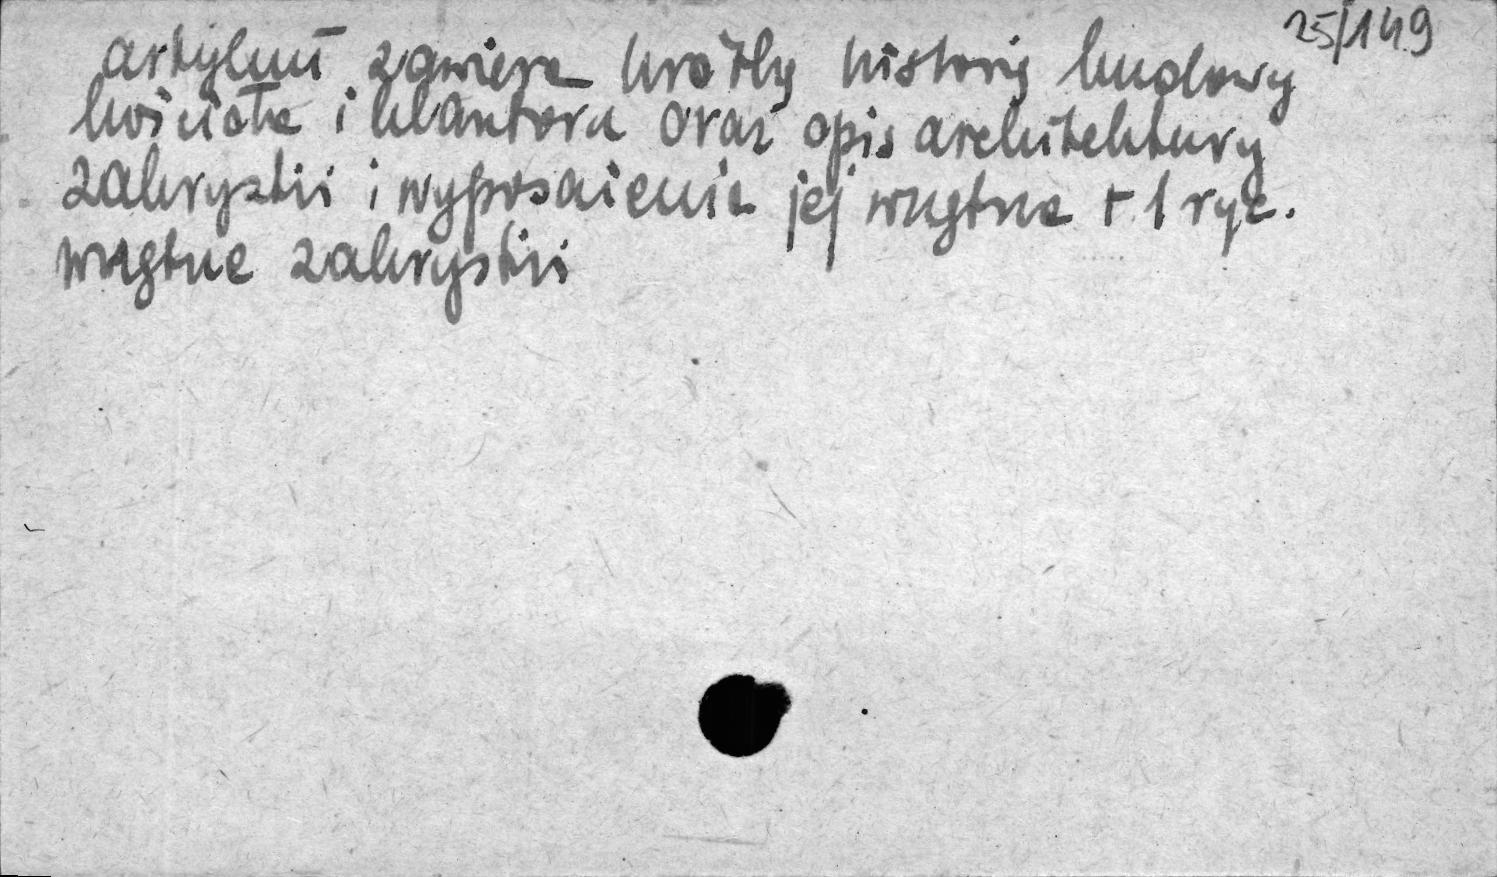 25/149
artykuł zawiera krótką historię budowy
kościoła i klasztoru oraz opis architektury
zakrystii i wyposażenia jej wnętrza + 1 ryc.
wnętrze zakrystii